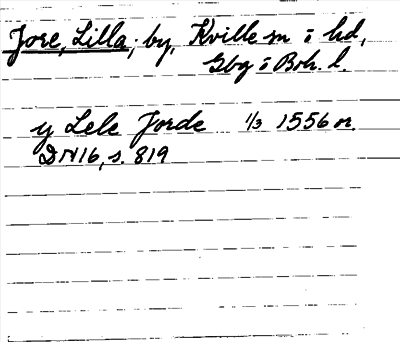 Jore, Lilla; by, Kville sn o hd,
Gbg o Boh. l.
y Lele Jorde 1/3 1556 or.
DN16, s. 819